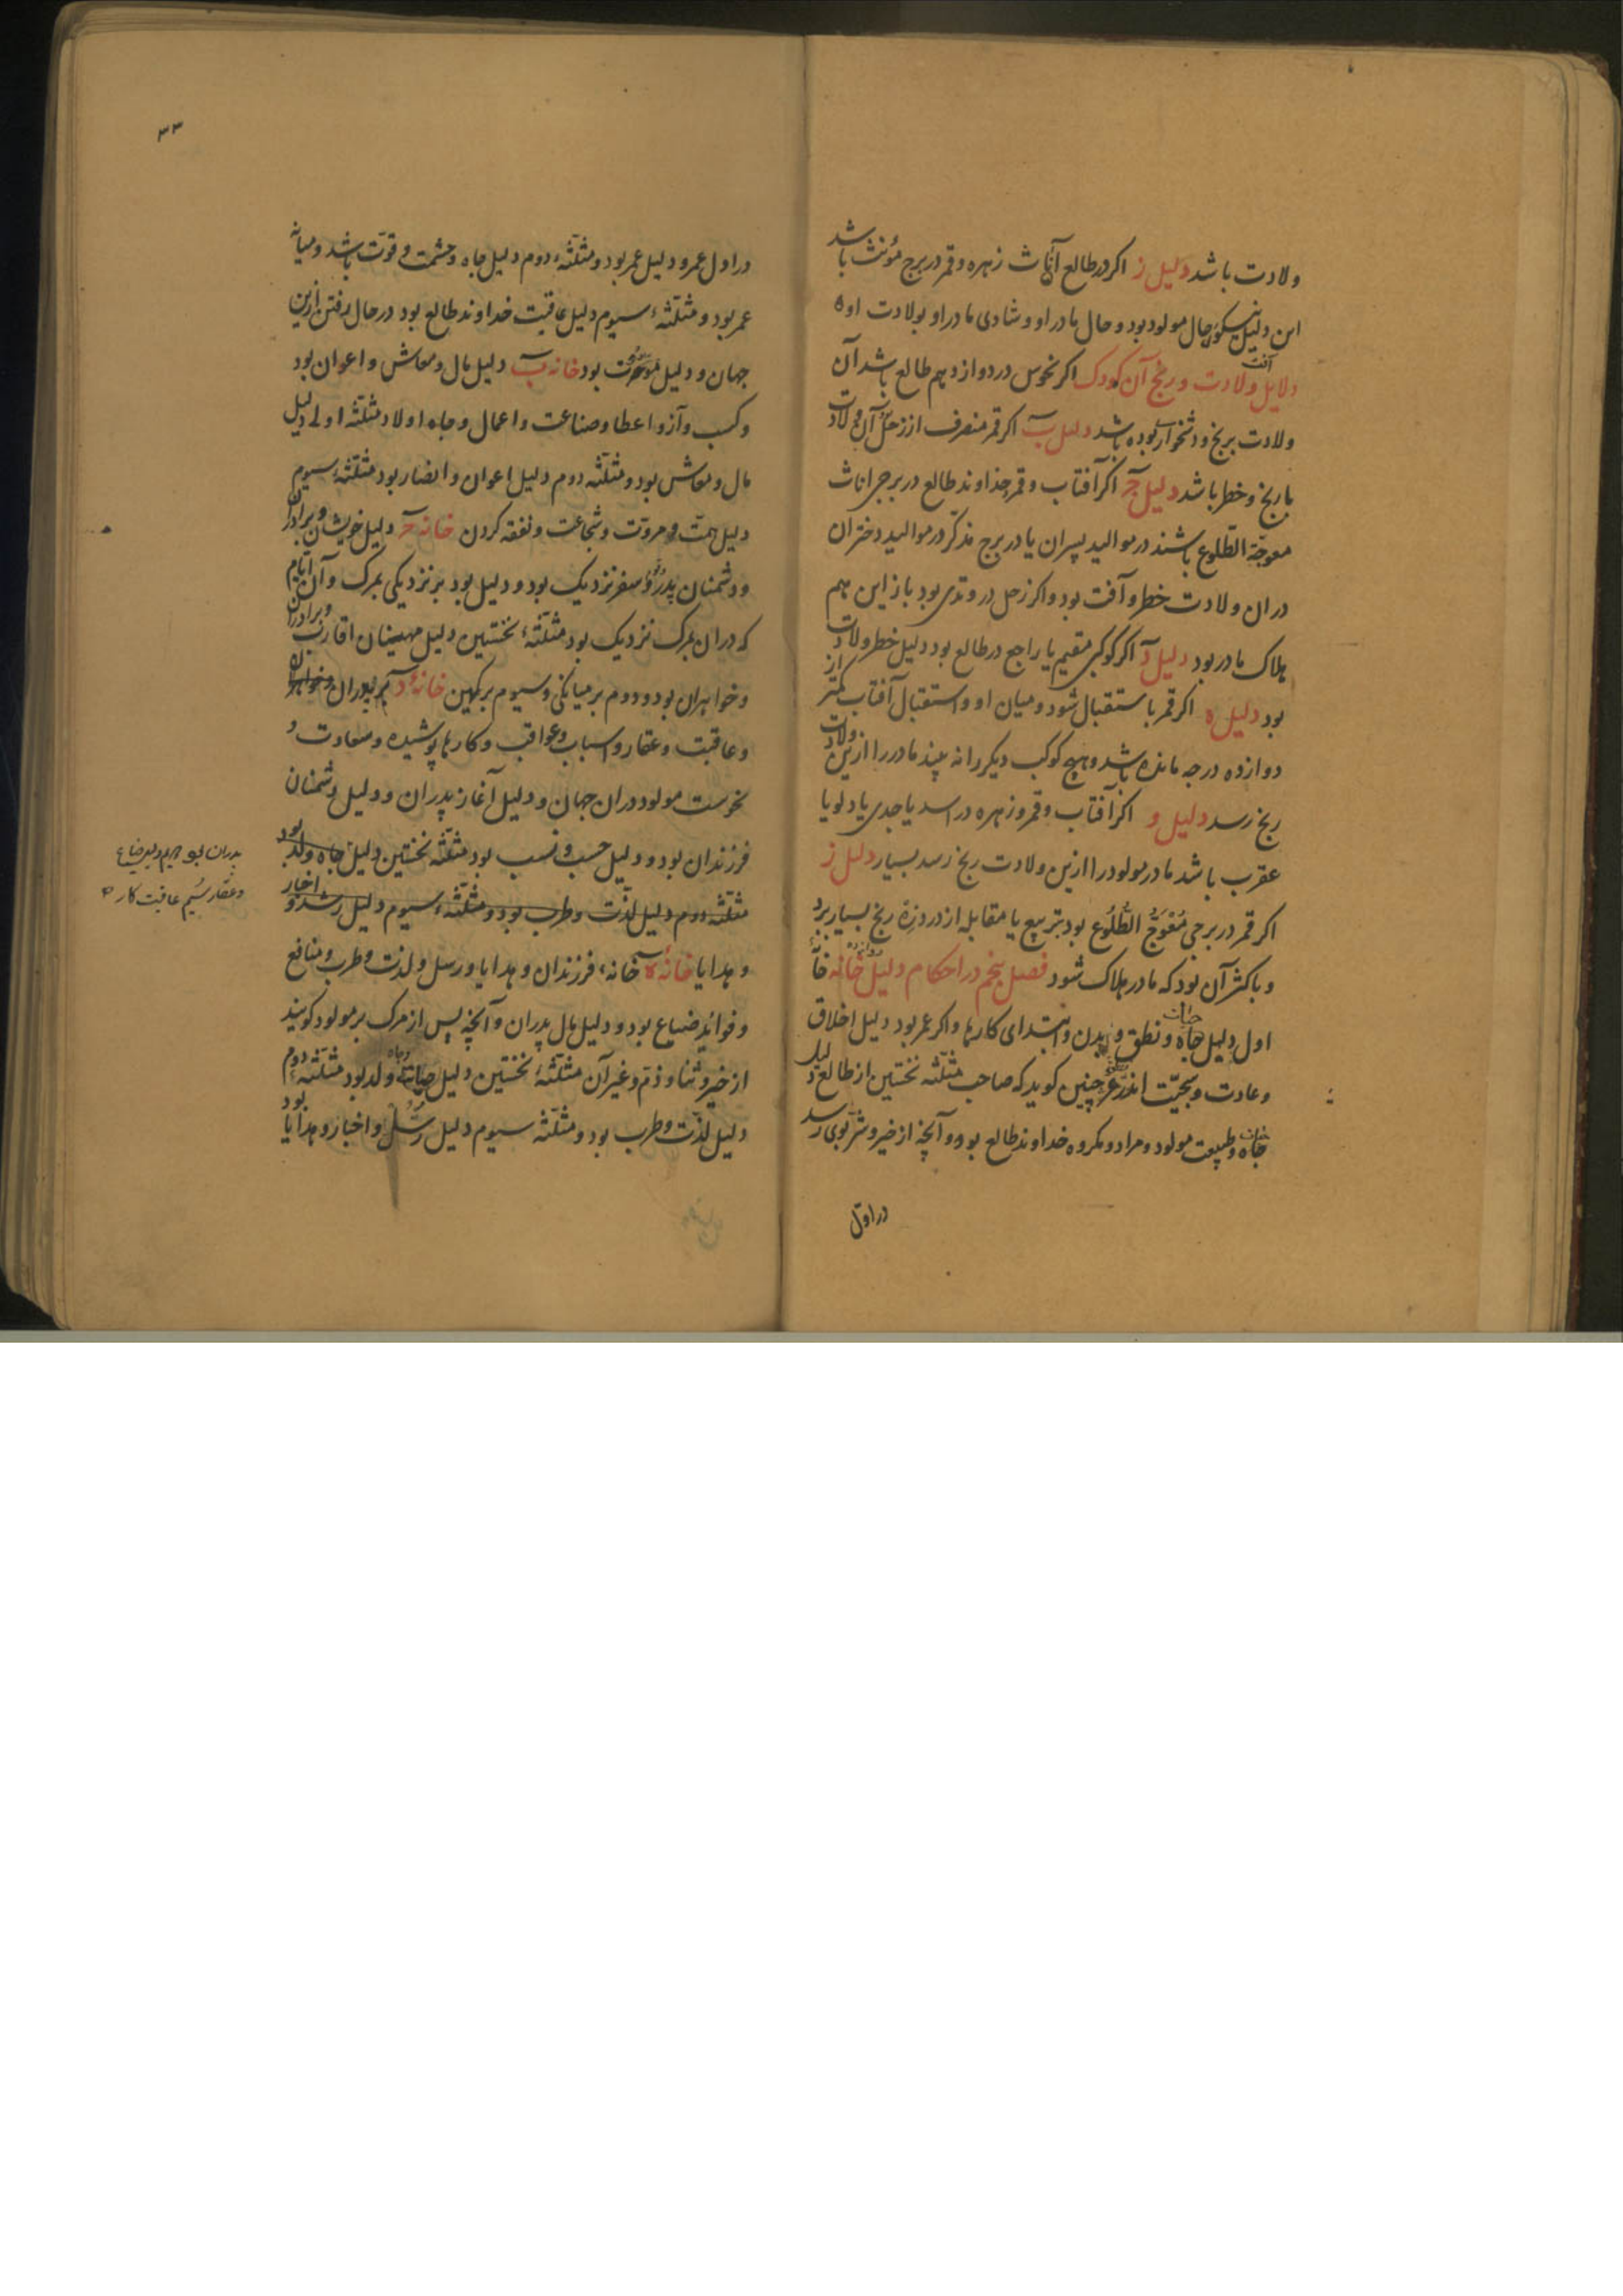 ولادت باشد دلیل ز اکر در طالع اناث زهره و قمر در برج مؤنث باشد
این دلیل نیکوی حال مولود بود و حال مادر او و شادی مادر او بولادت او ه
دلایل آفت ولادت و رنج آن کودک اکر نحوس در دوازدهم طالع باشد آن
ولادت برنج و دشخواری بوده باشد دلیل ب اکر قمر منصرف از زحل آن ولادت
با رنج و خطر باشد دلیل ج اکر آفتاب و قمر و خداوند طالع در برج اناث
معوجة الطلوع باشند در موالید پسران یا در برج مذکر در موالید دختران
دران ولادت خطر و آفت بود و اکر زحل در وتدی بود باز این هم
هلاک مادر بود دلیل د اکر کوکبی مقیم یا راجع در طالع بود دلیل خطر ولادت
بود دلیل ه اکر قمر باستقبال شود و میان او و استقبال آفتاب کمتر از
دوازده درجه مانده باشد و هیچ کوکب دیکر را نه بیند مادر را ازین ولادت
رنج رسد دلیل و اکر آفتاب و قمر و زهره در اسد یا جدی یا دلو یا
عقرب باشد مادر مولود را ازین ولادت رنج رسد بسیار دلیل ز
اکر قمر در برجی مُعْوَجُّ الطُّلُوع بود بتربیع یا مقابله از درد زِهْ رنج بسیار برد
و باکثر آن بود که مادر هلاک شود فصل پنجم در احکام دلیل دوازده خانه خانهٔ
اول دلیل حیات و نطق و بدن و ابتدای کارها و اکر عمر بود دلیل اخلاق
و عادت و سجیّت اندرزغر چنین کوید که صاحب مثلّثه نختین از طالع دلیل
حیات و طبیعت مولود و مراد و مکروه خداوند طالع بود و آنچه از خیر و شرّ بوی رسد
در اوّل
۳۳
در اول عمر و دلیل عمر بود و مثلّثهٔ دوم دلیل جاه و حشمت و قوّت باشد و میانهٔ
عمر بود و مثلّثهٔ سیوم دلیل عاقبت خداوند طالع بود در حال رفتن ازین
جهان و دلیل بود خانه ب دلیل مال و معاش و اعوان بود
و کسب و آز و اعطا و صناعت و اعمال و جاه اولاد مثلّثه اولی دلیل
مال و معاش بود و مثلّثه دوم دلیل اعوان و انصار بود مثلّثهٔ سیوم
دلیل همّت و مروّت و شجاعت و نفقه کردن خانه ج دلیل خویشان و برادران
و دشمنان پدر و سفر نزدیک بود و دلیل بود بر نزدیکی بمرک و آن ایّام
که دران بمرک نزدیک بود مثلّثهٔ نختین دلیل مهینان اقارب و برادران
و خواهران بود و دوم بر میانکی و سیوم بر کهین خانهٔ د بر پدران
و عاقبت و عقار و اسباب و عواقب و کارها پوشیده و سعادت و
نحوست مولود دران جهان و دلیل آغاز پدران و دلیل دشمنان
فرزندان بود و دلیل حسب و نسب بود مثلّثه نختین دلیل جاه ولد بود
مثلّثه دوم دلیل لذّت و طرب بود و مثلّثهٔ سیوم دلیل رشد و اخبار
و هدایا خانهٔ ه خانهٔ فرزندان و هدایا و رسل و لذت و طرب و منافع
و فواید ضیاع بود و دلیل مال پدران و آنچه پس از مرک بر مولود کویند
از خیر و ثنا و ذم و غیر آن مثلّثهٔ نختین دلیل ولد بود مثلّثهٔ دوم
دلیل لذّت و طرب بود و مثلّثه سیوم دلیل رُسُل و اخبار و هدایا بود
و عقار سیُم عاقبت کار